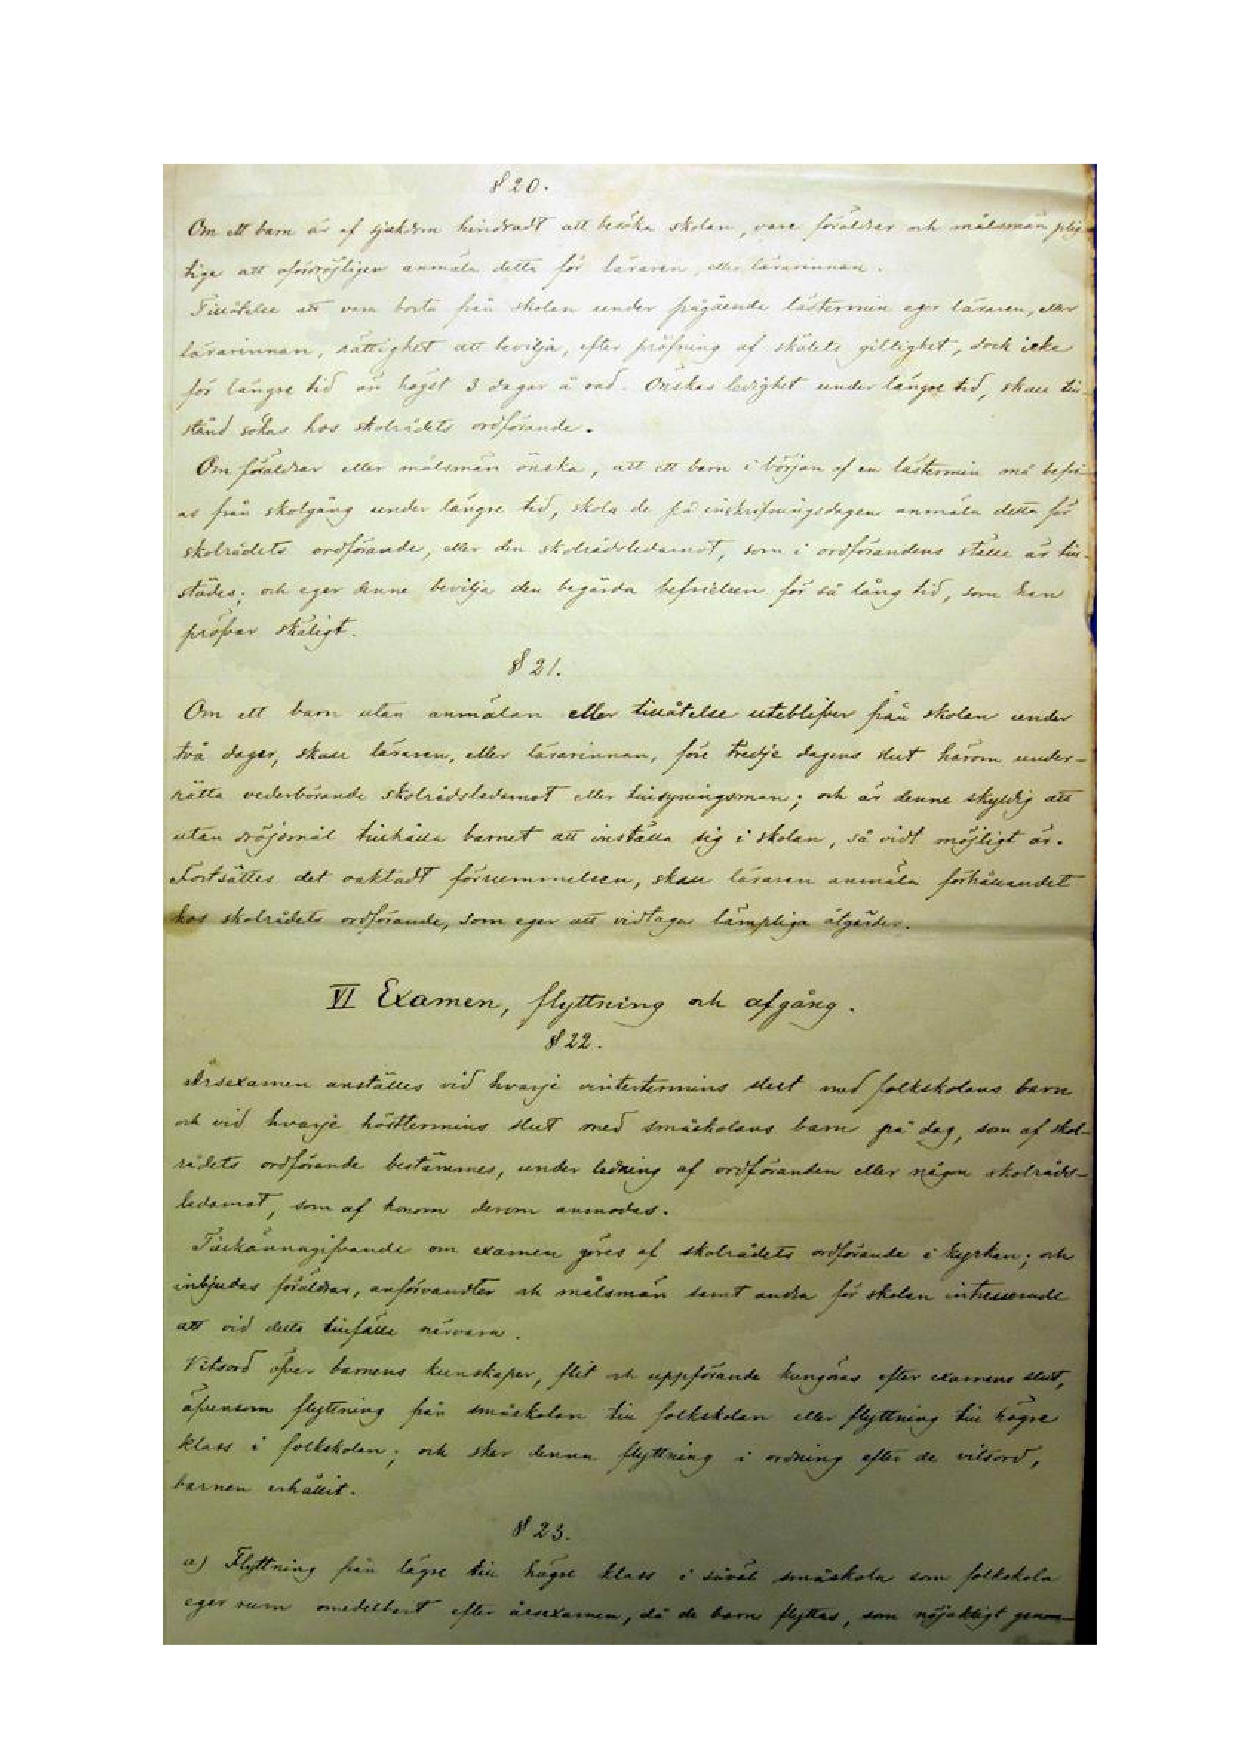 § 20.
Om ett barn är af sjukdom hindradt att besöka skolan, vare föräldrar och målsmän plig-
tige att ofördröjligen anmäla detta för läraren, eller lärarinnan.
Tillåtelse att vara borta från skolan under pågående lästermin eger läraren, eller
lärarinnan, rättighet att bevilja, efter pröfning af skälets giltighet, dock icke
för längre tid än högst 3 dagar å rad. Önskas ledighet under längre tid, skall till-
stånd sökas hos skolrådets ordförande.
Om föräldrar eller målsmän önska, att ett barn i början af en lästermin må befri-
as från skolgång under längre tid, skola de på inskrifningsdagen anmäla detta för
skolrådets ordförande, eller den skolrådsledamot, som i ordförandens ställe är till-
städes; och eger denne bevilja den begärda befrielsen för så lång tid, som han
pröfvar skäligt.
§ 21.
Om ett barn utan anmälan eller tillåtelse uteblifver från skolan under
två dagar, skall läraren, eller lärarinnan, före tredje dagens slut härom under-
rätta vederbörande skolrådsledamot eller tillsyningsman; och är denne skyldig att
utan dröjsmål tillhålla barnet att inställa sig i skolan, så vidt möjligt är.
Fortsättes det oaktadt försummelsen, skall läraren anmäla förhållandet
hos skolrådets ordförande, som eger att vidtaga lämpliga åtgärder.
VI Examen, flyttning och afgång.
§ 22.
Årsexamen anställes vid hvarje vintertermins slut med folkskolans barn
och vid hvarje hösttermins slut med småskolans barn på dag, som af skol-
rådets ordförande bestämmes, under ledning af ordföranden eller någon skolråds-
ledamot, som af honom derom anmodas.
Tillkännagifvande om examen göres af skolrådets ordförande i kyrkan; och
inbjudas föräldrar, anförvandter och målsmän samt andra för skolan intresserade
att vid detta tillfälle närvara.
Vitsord öfver barnens kunskaper, flit och uppförande kungöras efter examens slut,
äfvensom flyttning från småskolan till folkskolan eller flyttning till högre
klass i folkskolan; och sker denna flyttning i ordning efter de vitsord,
barnen erhållit.
§ 23.
a) Flyttning från lägre till högre klass i såväl småskola som folkskola
eger rum omedelbart efter årsexamen, då de barn flyttas, som nöjaktigt genom-